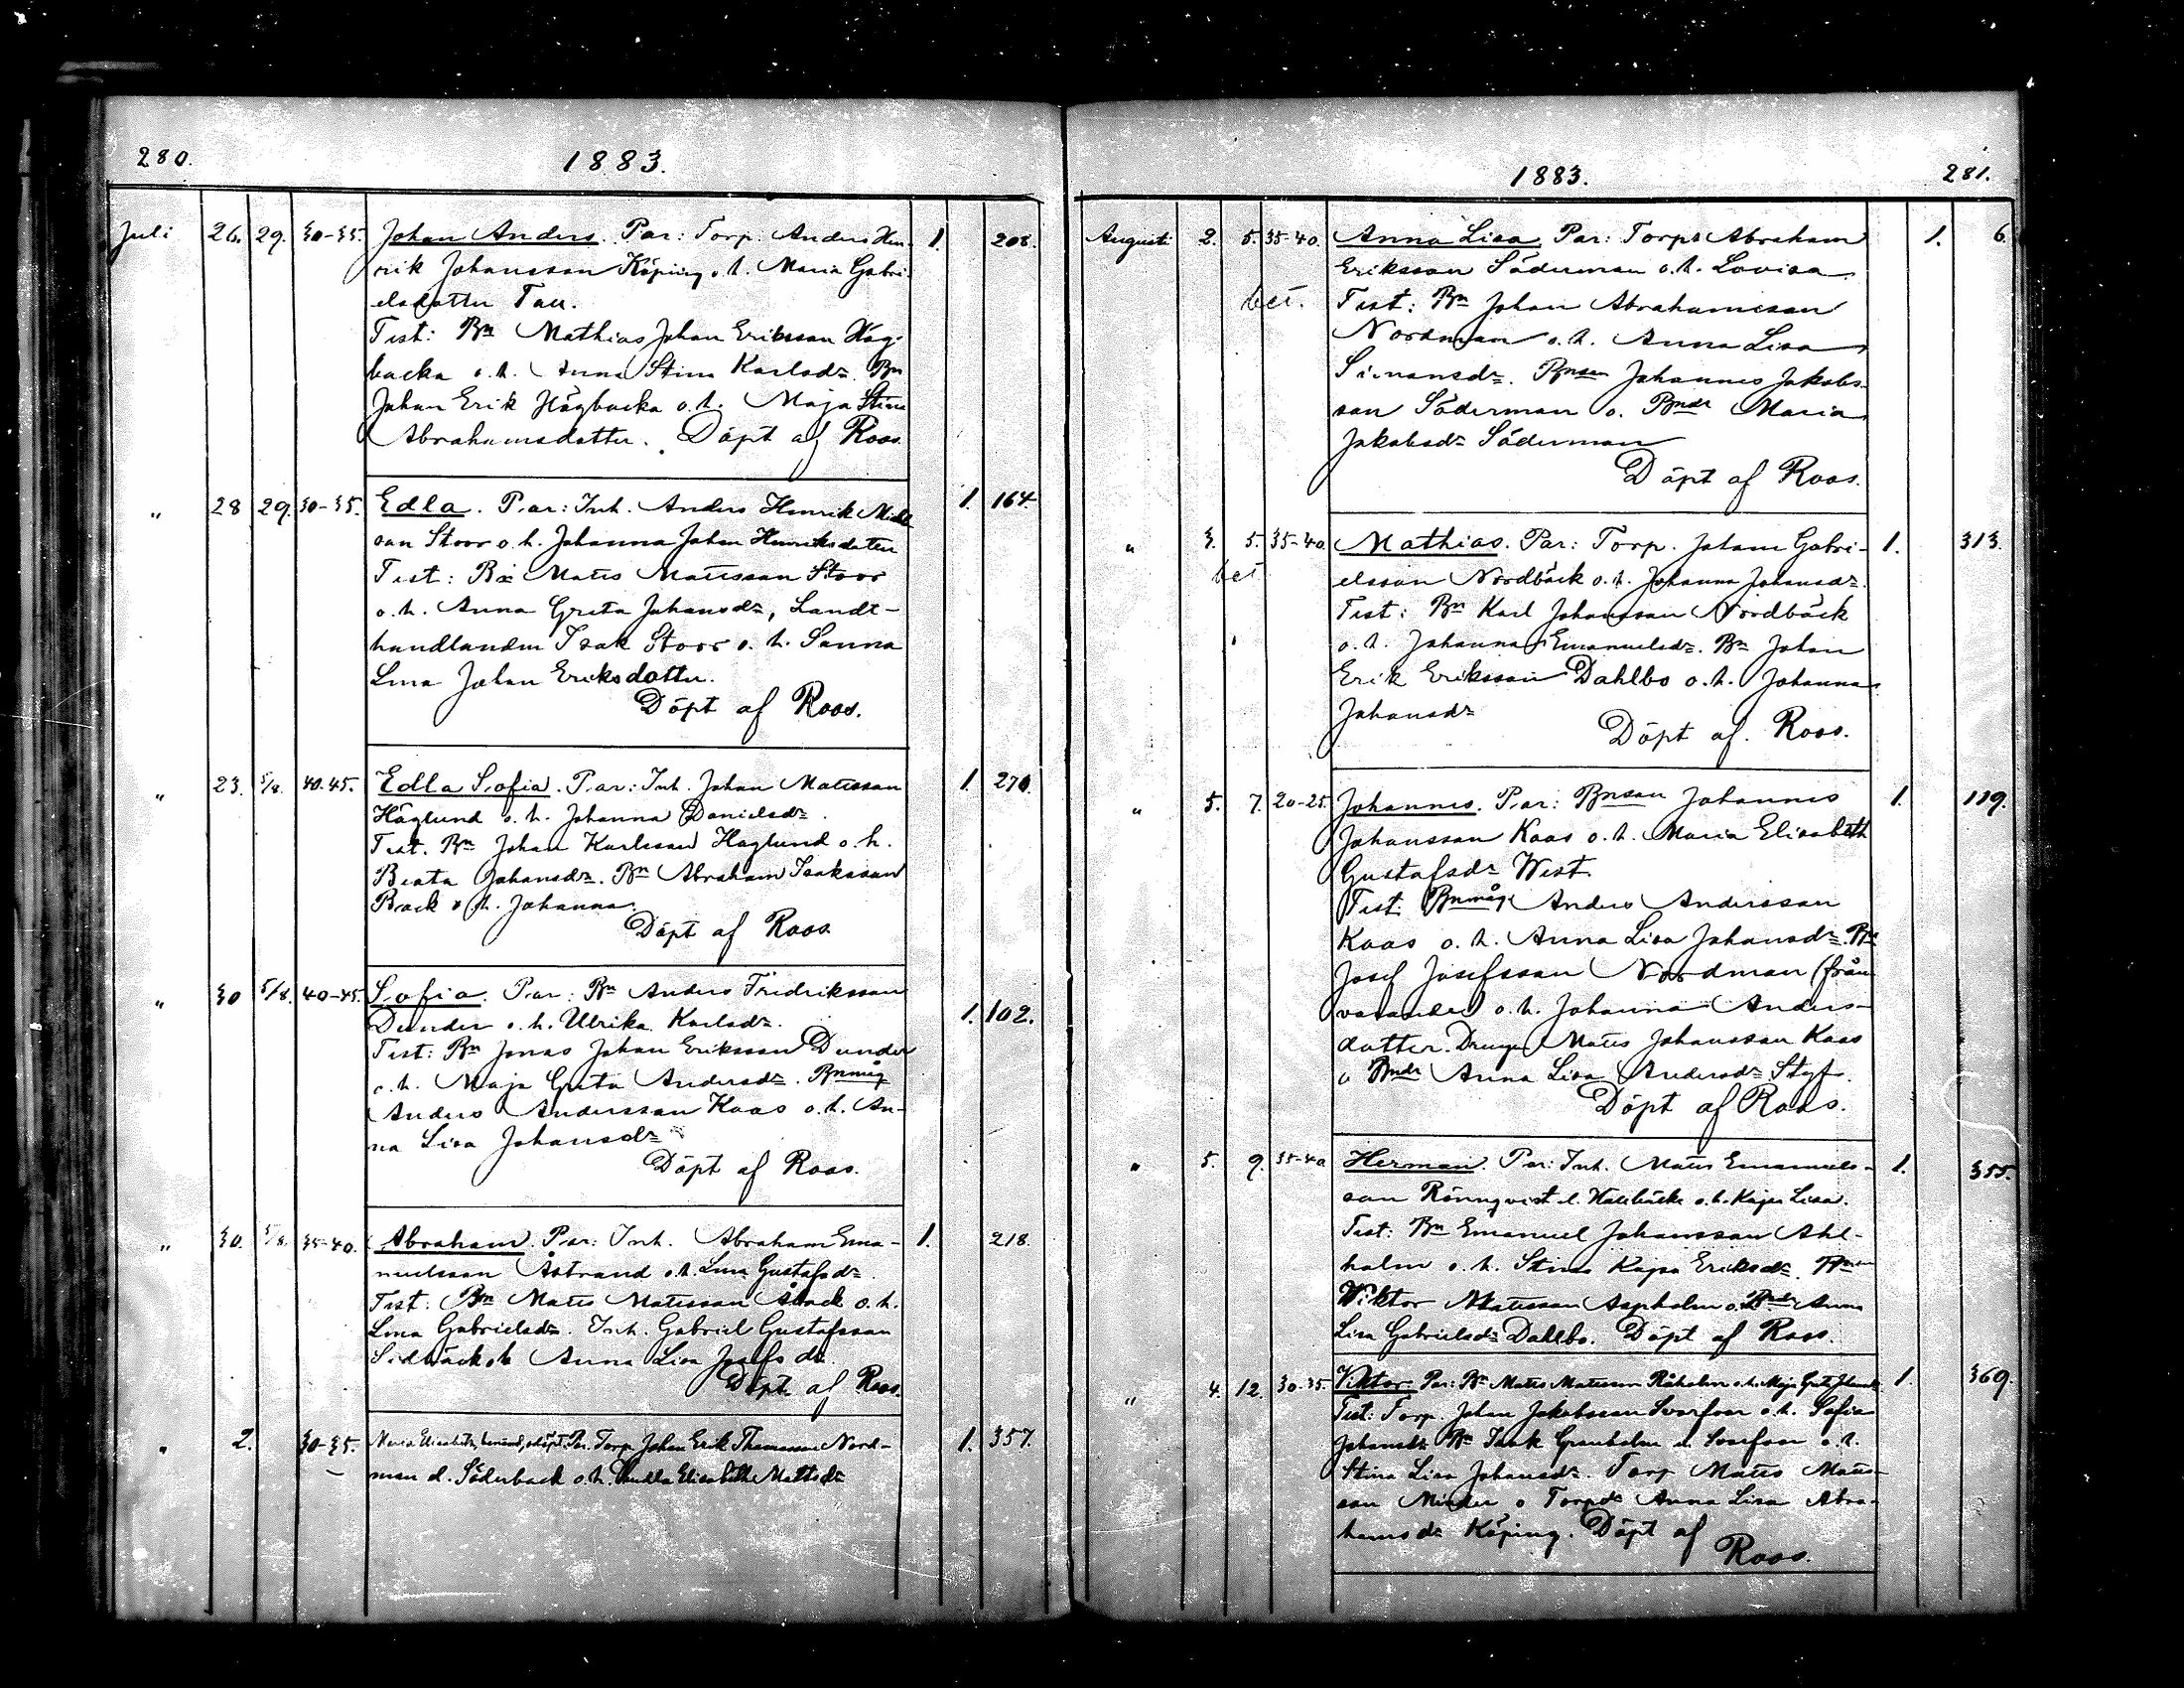 280.
1883.
Juli 26. 29. 30-35. Johan Anders. Par: Torp. Anders Hen- 1. 208.
rik Johansson Köping o. h. Maria Gabri-
elsdotter
Test: Bn Mathias Johan Eriksson Hög-
backa o. h. Anna Stina Karlsdr. Bn
Johan Erik Högbacka o. h. Maja Stina
Abrahamsdotter. Döpt af Roos.
" 28 29. 30-35. Edla. Par: Inh. Anders Henrik Matts
son Stoor o. h. Johanna Johan Henriksdotter 1. 164.
Test: Bn Matts Mattsson Stoor
o. h. Anna Greta Johansdr, Landt-
handlanden Isak Stoor o. h. Sanna
Lena Johan Eriksdotter.
Döpt af Roos.
" 23. 5/8. 40-45. Edla Sofia. Par: Inh. Johan Mattsson 1. 270.
Höglund o. h. Johanna Danielsdr.
Test. Bn Johan Karlsson Höglund o. h.
Beata Johansdr. Bn Abraham Isaksson
Back o. h. Johanna.
Döpt af Roos.
" 30 5/8. 40-45. Sofia. Par: Bn Anders Fredriksson
Dunder o. h. Ulrika Karlsdr. 1. 102.
Test: Bn Jonas Johan Eriksson Dunder
o. h. Maja Greta Andersdr. Bnmåg
Anders Andersson Kaas o. h. An-
na Lisa Johansdr
Döpt af Roos.
" 30. 5/8. 35-40. Abraham. Par: Inh. Abraham Ema- 1. 218.
nuelsson Åstrand o. h. Lena Gustafsdr.
Test: Bn Matts Mattsson o. h.
Lena Gabrielsdr. Inh. Gabriel Gustafsson
Sidbäck o. h. Anna Lisa Josefsdr.
Döpt af Roos.
" 2. 30-35. Maria Elisabeth, Par. Torp. Johan Erik Thomasson Nord- 1. 357.
man d. Söderback o. h. Elisabeth Mattsdr
1883.
281.
Augusti 2. 5. 35-40. Anna Lisa. Par: Torp. Abraham 1. 6.
Eriksson Söderman o. h. Lovisa.
bet. Test: Bn Johan Abrahamsson
Nordman o. h. Anna Lisa
Simonsdr. Bnson Johannes Jakobs-
son Söderman o. Bndr Maria
Jakobsdr Söderman
Döpt af Roos.
" 3. 5. 35-40. Mathias. Par: Torp. Johan Gabri- 1. 313.
bet elsson Nordbäck o. h. Johanna Johansdr.
Test: Bn Karl Johansson Nordbäck
o. h. Johanna Emanuelsdr. Bn Johan
Erik Eriksson Dahlbo o. h. Johanna
Johansdr
Döpt af. Roos.
" 5. 7. 20-25. Johannes. Par: Bnson Johannes 1. 119.
Johansson Kaas o. h. Maria Elisabeth
Gustafsdr West.
Test. Bnmåg Anders Andersson
Kaas o. h. Anna Lisa Johansdr. Bn
Josef Josefsson Nordman (från
varande) o. h. Johanna Anders-
dotter. Dreng Matts Johansson Kaas
o Bndr Anna Lisa Andersdr Styf.
Döpt af Roos.
" 5. 9. 35-40 Herman. Par: Inh. Matts Emanuels- 1. 355.
son Rönnqvist o. h. Kajsa Lisa.
Test: Bn Emanuel Johansson Ahl-
holm o. h. Stina Kajsa Eriksdr. Bnson
Wiktor Mattsson Aspholm o. Bndr Anna
Lisa Gabrielsdr Dahlbo. Döpt af Roos.
" 4. 12. 30-35. Viktor. Par: Bn Matts Mattsson o. h. Maja Greta 1. 369.
Test: Torp. Johan Jakobsson Svarfvar o. h. Sofia
Johansdr. Bn Isak Granholm Svarfvar o. h.
Stina Lisa Johansdr. Torp Matts Matts-
son o Torpdr Anna Lisa Abra-
hamsdr Köping. Döpt af
Roos.